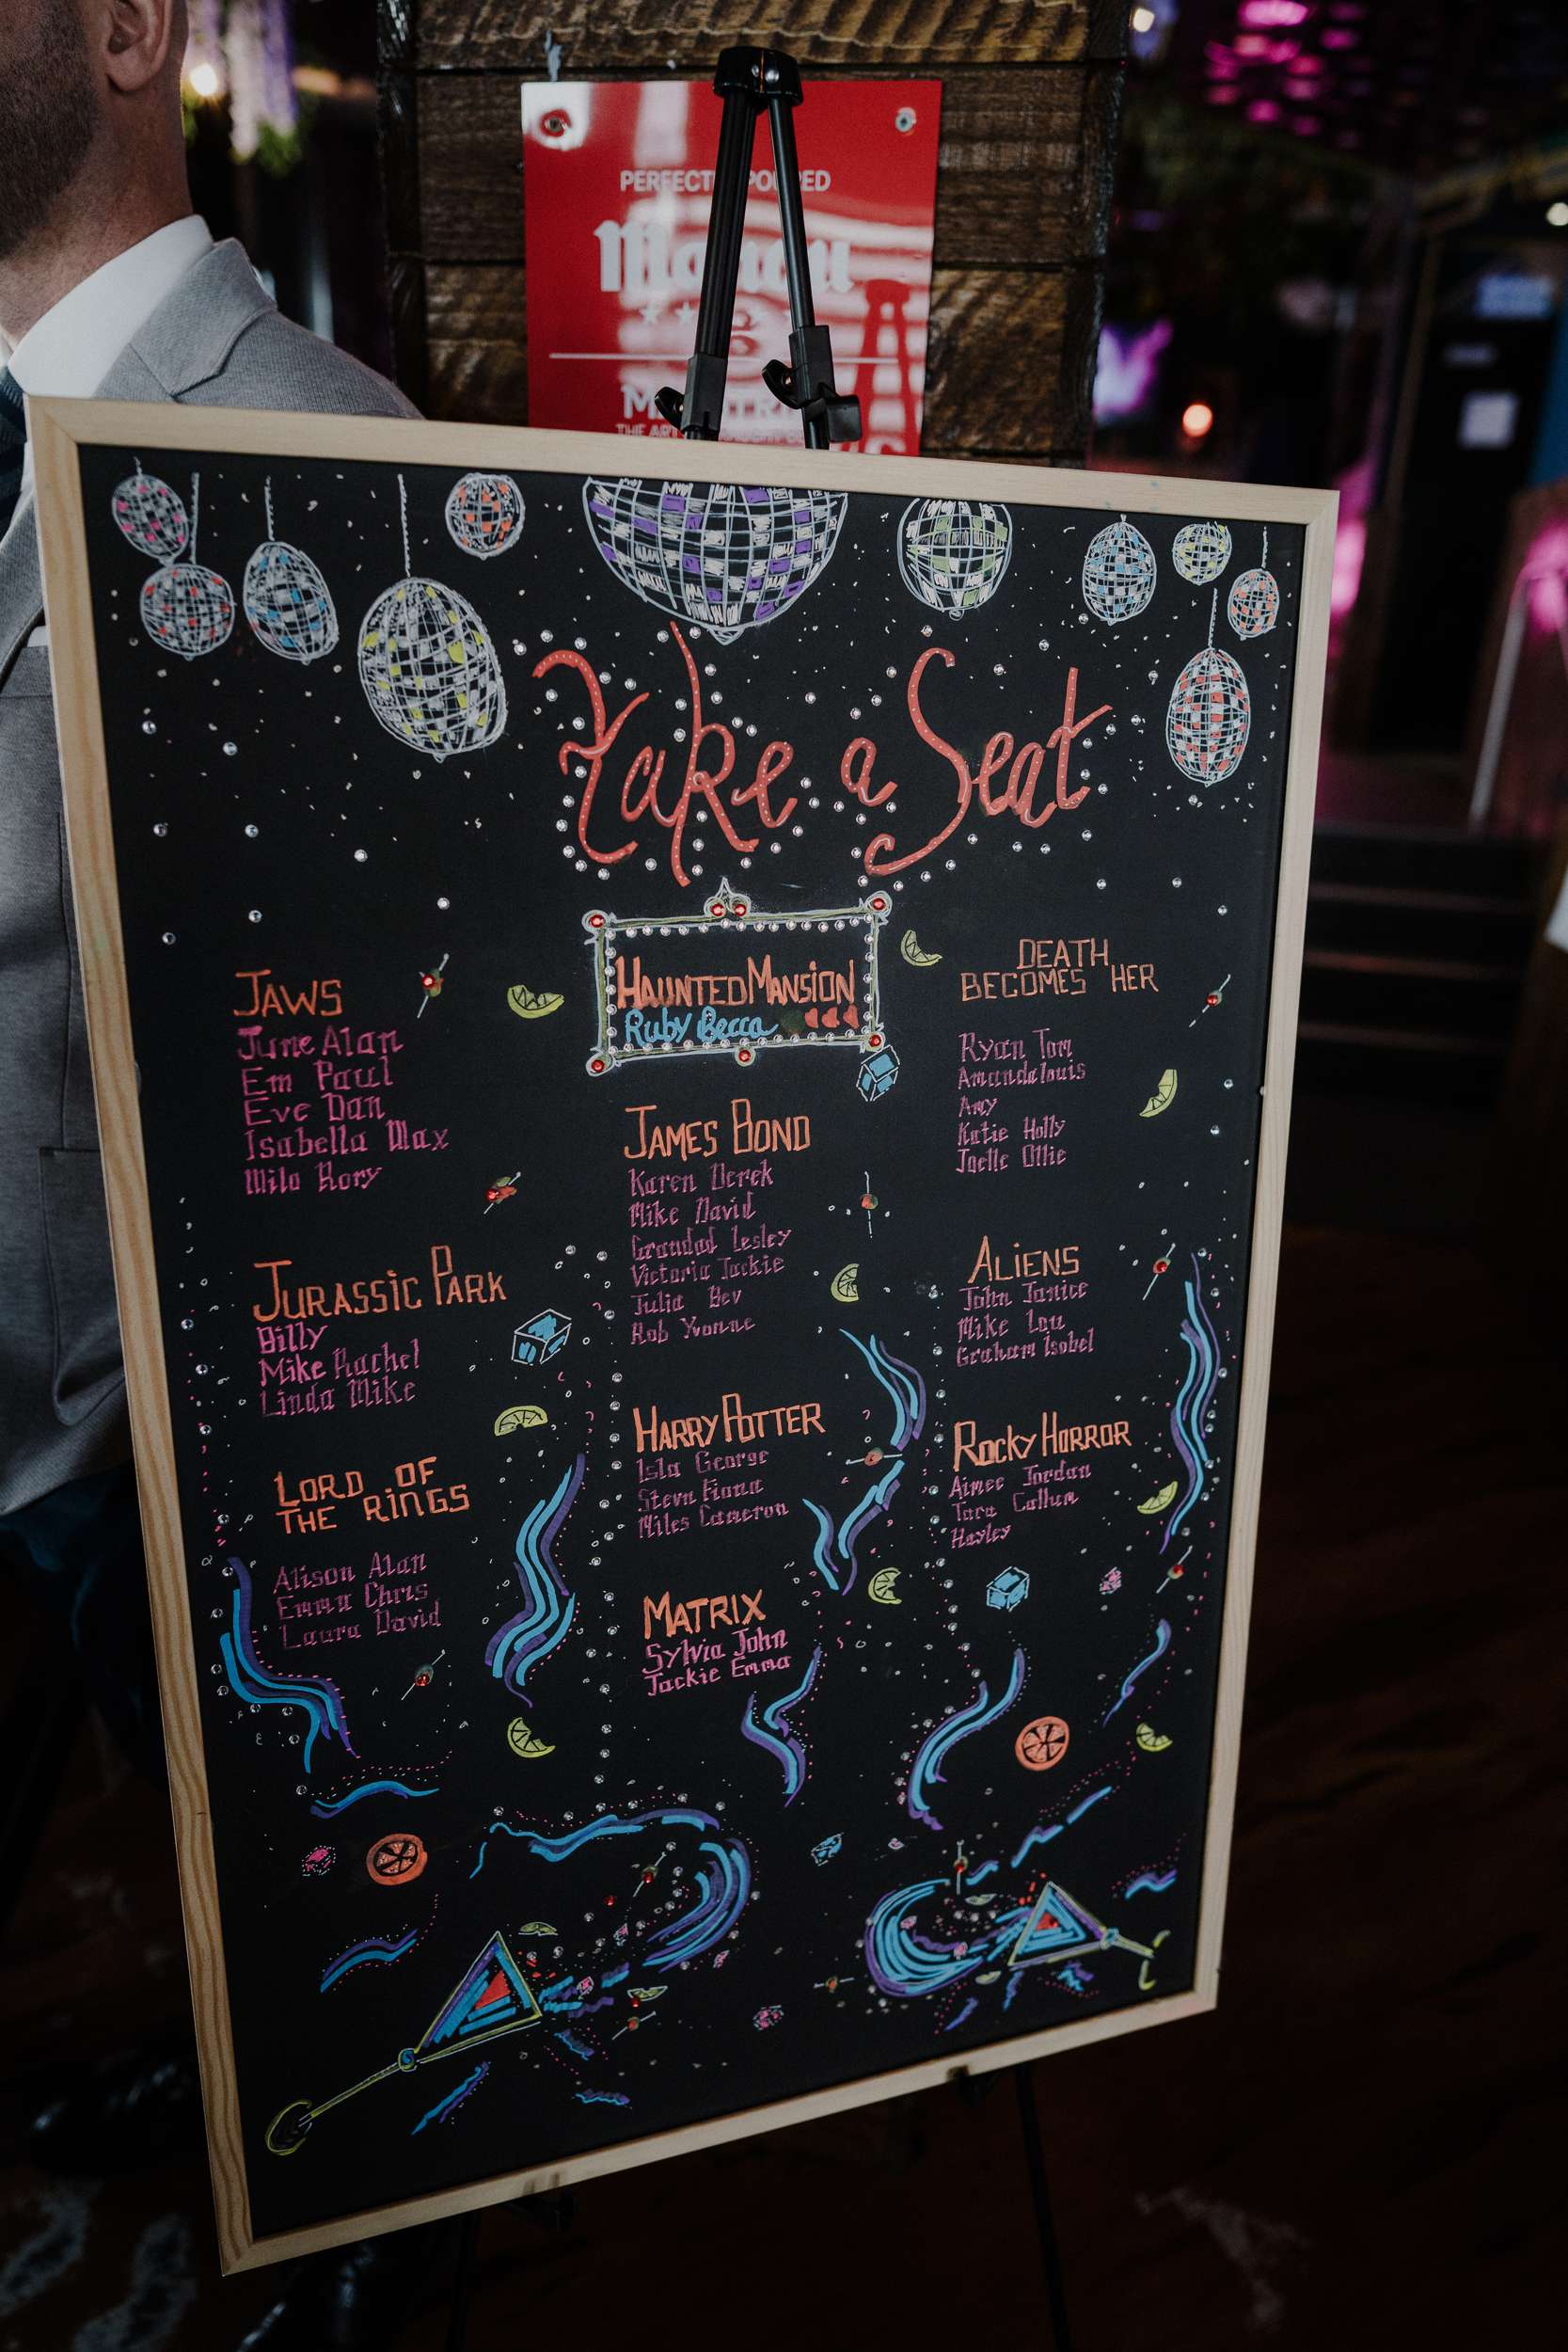 PERFECTLY POURED
THE ART
Take a Seat
HAUNTED MANSION
Ruby Becca
JAWS
June Alan
Em Paul
Eve Dan
Isabella Max
Milo Rory
JURASSIC PARK
Billy
Mike Rachel
Linda Mike
LORD OF
THE RINGS
Alison Alan
Emma Chris
Laura David
JAMES BOND
Karen Derek
Mike David
Grandad Lesley
Victoria Jackie
Julia Bev
Rob Yvonne
HARRY POTTER
Isla George
Steve Fiona
Miles Cameron
MATRIX
Sylvia John
Jackie Emma
DEATH
BECOMES HER
Ryan Tom
Amanda Louis
Amy
Katie Holly
Joelle Ollie
ALIENS
John Janice
Mike Lou
Graham Isobel
ROCKY HORROR
Aimee Jordan
Tara Callum
Hayley